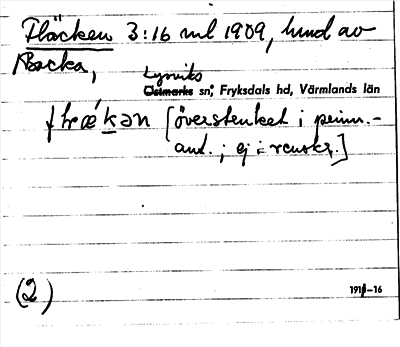 Fläcken 3:16 ml 1909, hmd av
Backa,
Lysviks
Östmarks sn, Fryksdals hd, Värmlands län
fḷæ´kən [överstruket i prim.-
ant.; ej i renskr.]
(2)
191 -16